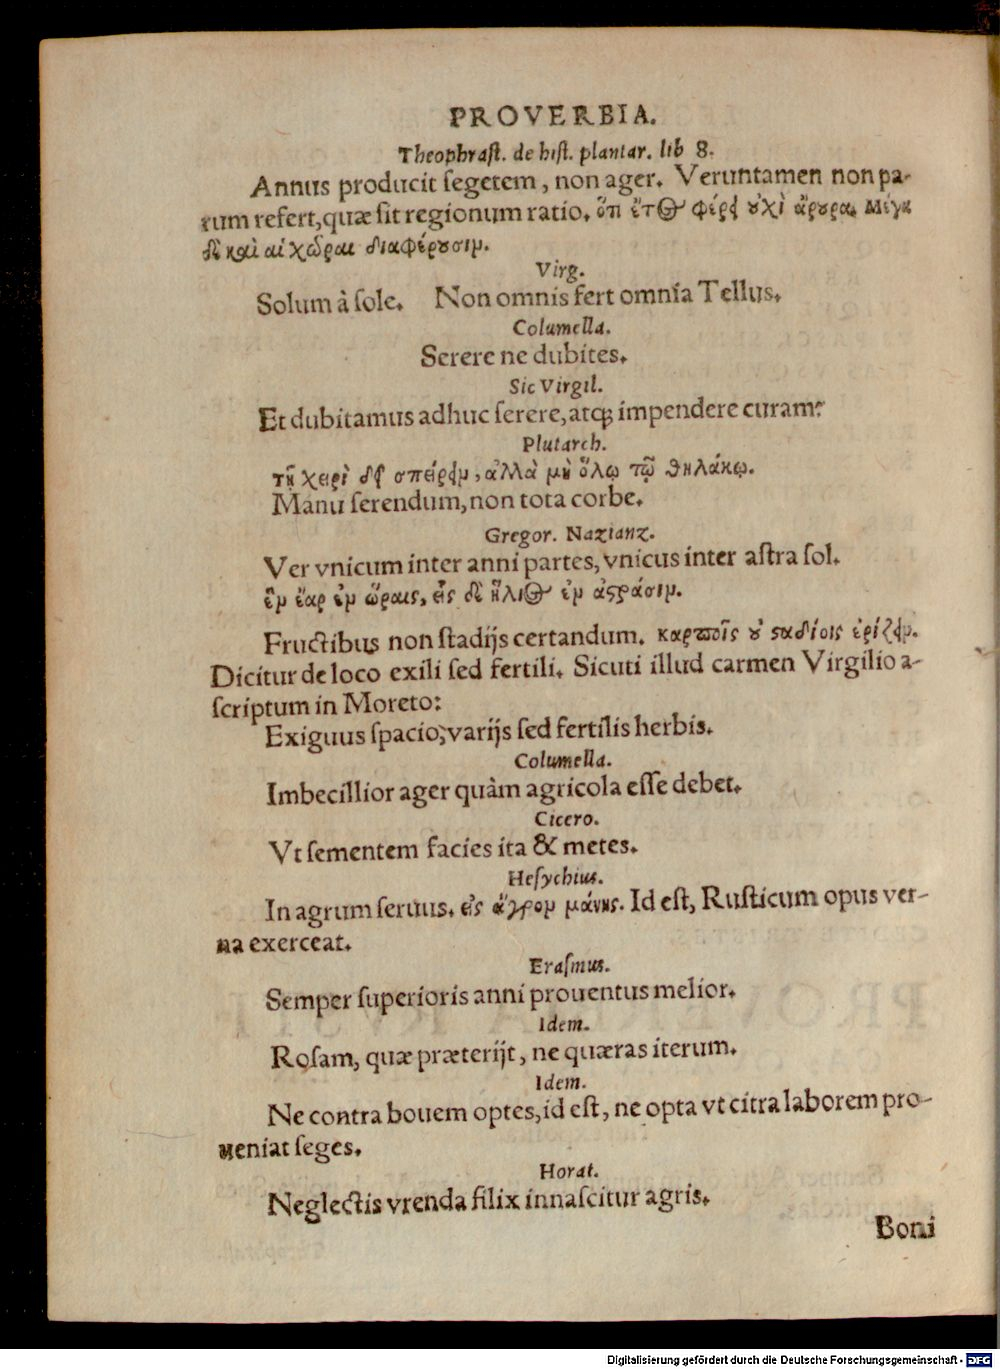 PROVERBIA.
Theophraſt. de hiſt. plantar. lib 8.
Annus producit ſegetem, non ager. Veruntamen non pa-
rum refert, quæ ſit regionum ratio. ὅτι ἔτος φέρει οὐχὶ ἄρουρα. Μέγα
δὲ καὶ αἱ χῶραι διαφέρουσιν.
Virg.
Solum à ſole. Non omnis fert omnia Tellus.
Columella.
Serere ne dubites.
Sic Virgil.
Et dubitamus adhuc ſerere, atq; impendere curam?
Plutarch.
τῇ χειρὶ δεῖ σπείρειν, ἀλλὰ μὴ ὅλῳ τῷ θηλάκῳ.
Manu ſerendum, non tota corbe.
Gregor. Nazianz.
Ver vnicum inter anni partes, vnicus inter aſtra ſol.
ἓν ἔαρ ἐν ὥραις, εἷς δὲ ἥλιος ἐν ἀστράσιν.
Fructibus non ſtadijs certandum. καρποῖς οὐ σταδίοις ἐρίζειν.
Dicitur de loco exili ſed fertili. Sicuti illud carmen Virgilio a-
ſcriptum in Moreto:
Exiguus ſpacio; varijs ſed fertilis herbis.
Columella.
Imbecillior ager quàm agricola eſſe debet.
Cicero.
Vt ſementem facies ita & metes.
Heſychius.
In agrum ſeruus. εἰς ἄγρον μάνης. Id eſt, Ruſticum opus ver-
na exerceat.
Eraſmus.
Semper ſuperioris anni prouentus melior.
Idem.
Roſam, quæ præterijt, ne quæras iterum.
Idem.
Ne contra bouem optes, id eſt, ne opta vt citra laborem pro-
ueniat ſeges.
Horat.
Neglectis vrenda filix innaſcitur agris.
Boni
Digitalisierung gefördert durch die Deutsche Forschungsgemeinschaft - DFG